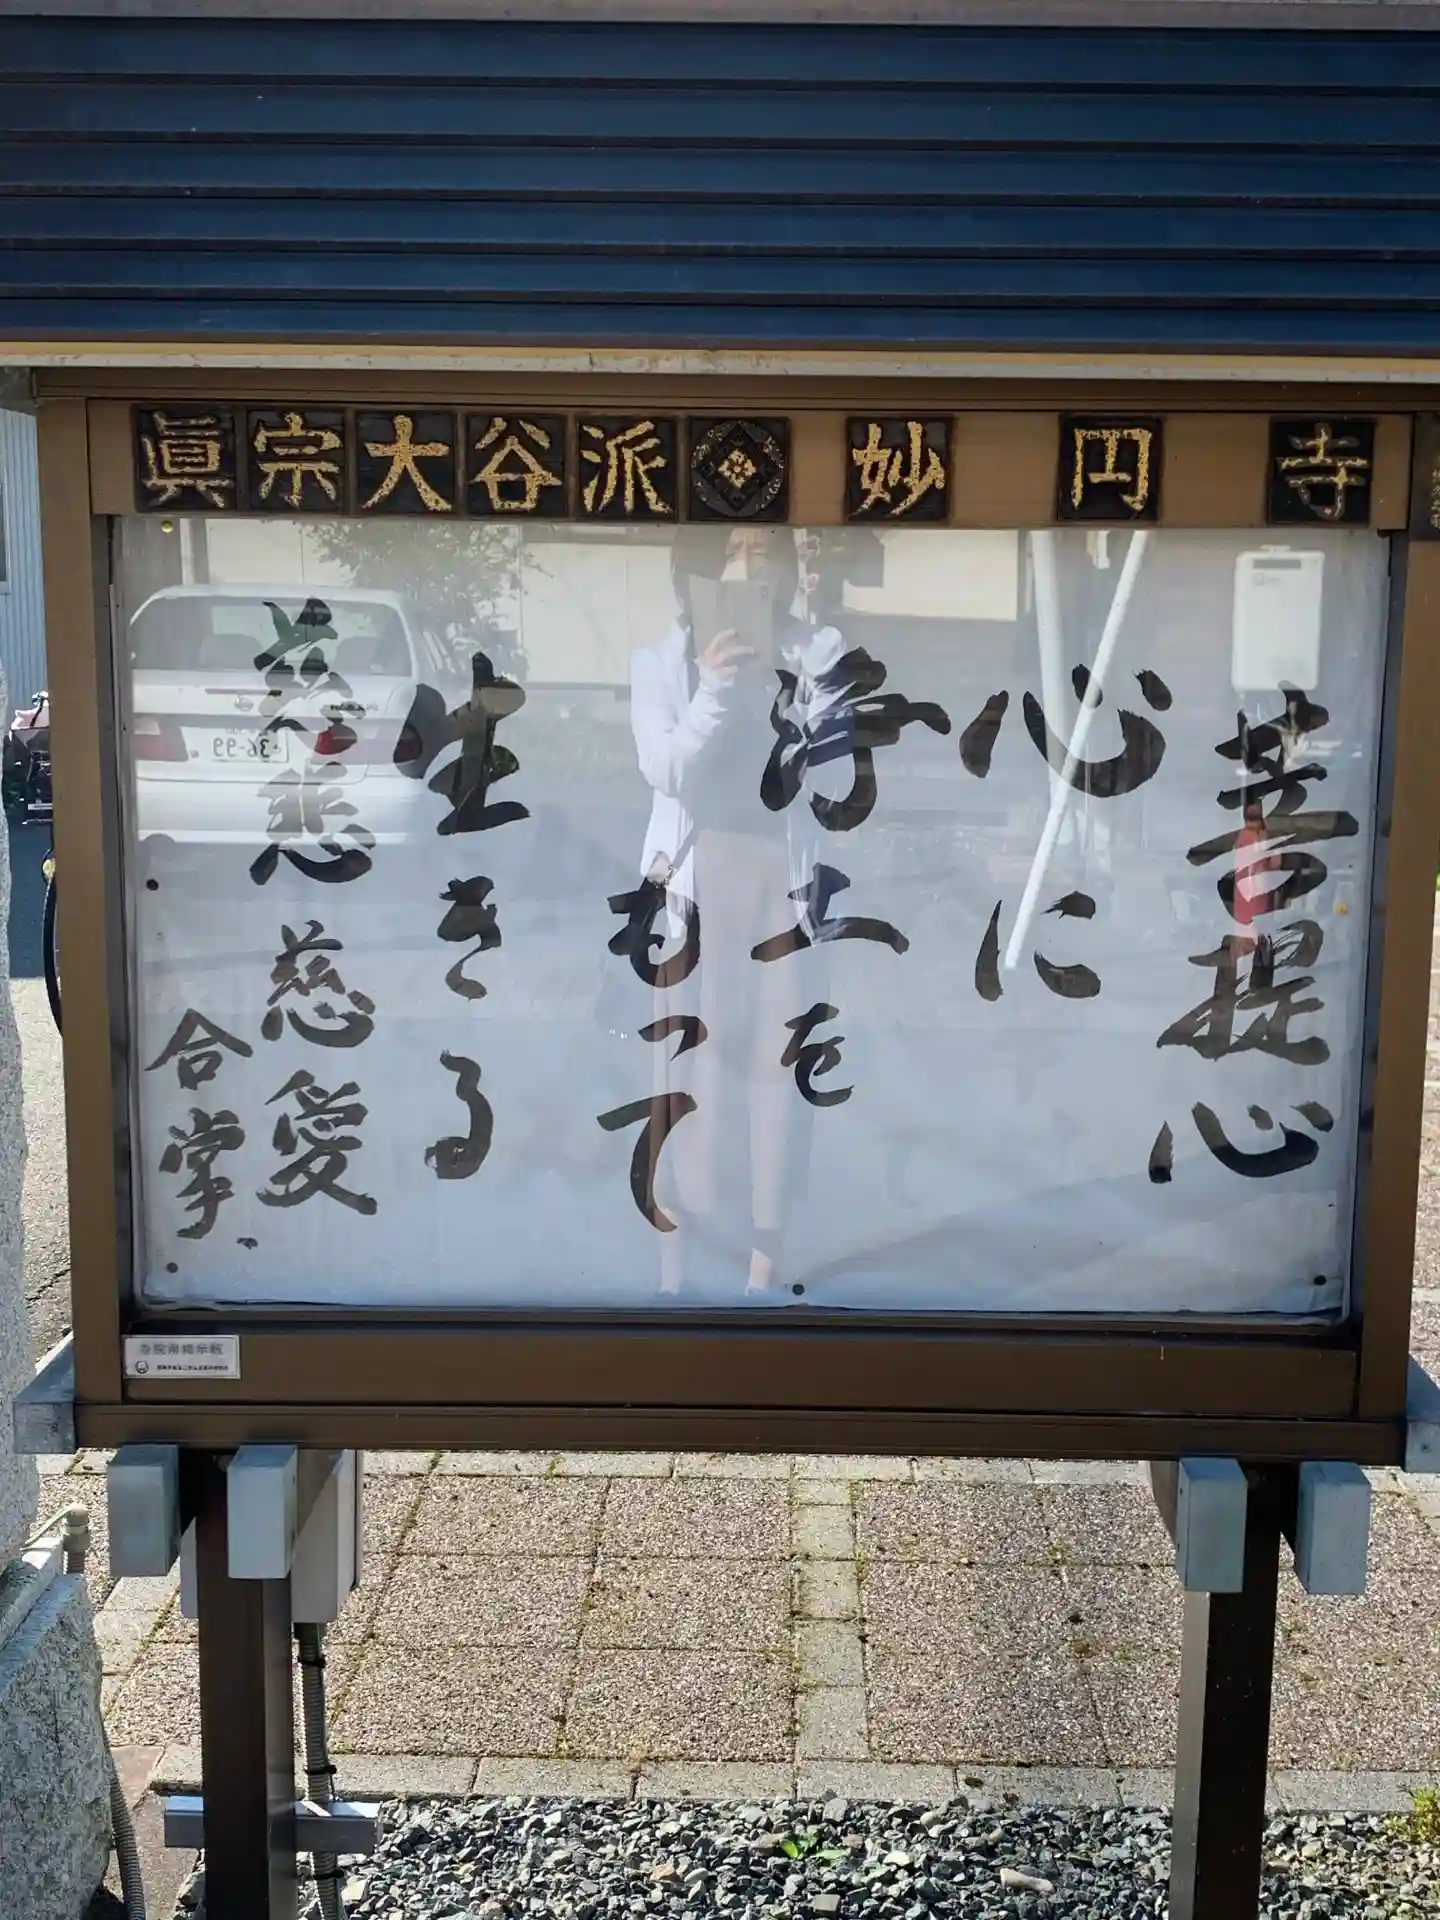 眞宗大谷派 妙円寺
菩提心
心に
浄土を
もって
生きる
慈悲 慈愛
合掌、
寺院用掲示板